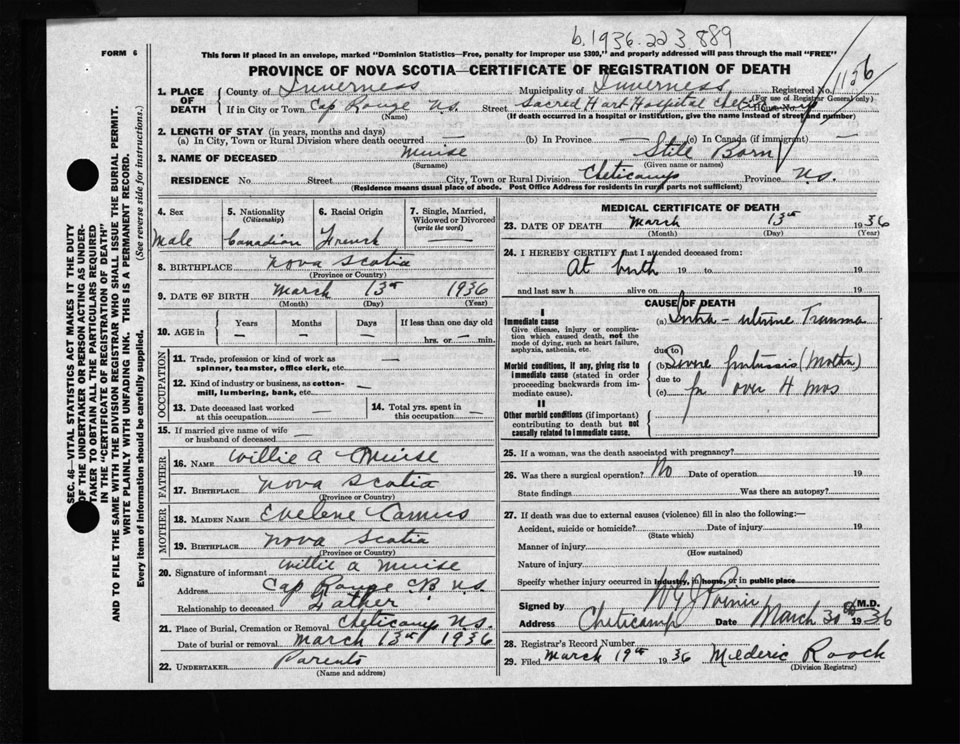 b.1936.223 889
FORM 6
This form if placed in an envelope, marked "Dominion Statistics—Free, penalty for improper use $300," and properly addressed will pass through the mail "FREE"
PROVINCE OF NOVA SCOTIA—CERTIFICATE OF REGISTRATION OF DEATH
1156
SEC. 46—VITAL STATISTICS ACT MAKES IT THE DUTY
OF THE UNDERTAKER OR PERSON ACTING AS UNDER-
TAKER TO OBTAIN ALL THE PARTICULARS REQUIRED
IN THE "CERTIFICATE OF REGISTRATION OF DEATH"
AND TO FILE THE SAME WITH THE DIVISION REGISTRAR WHO SHALL ISSUE THE BURIAL PERMIT.
WRITE PLAINLY WITH UNFADING INK. THIS IS A PERMANENT RECORD.
Every item of information should be carefully supplied. (See reverse side for instructions.)
1. PLACE OF DEATH
County of Inverness Municipality of Inverness Registered No.
(For use of Registrar General only)
If in City or Town Cap Rouge N.S. Street Sacred Hart Hospital House No.
(Name) (If death occurred in a hospital or institution, give the name instead of street and number)
2. LENGTH OF STAY (in years, months and days)
(a) In City, Town or Rural Division where death occurred — (b) In Province — (c) In Canada (if immigrant) —
3. NAME OF DECEASED Muise Still Born
(Surname) (Given name or names)
RESIDENCE No. Street City, Town or Rural Division Cheticamp Province N.S.
(Residence means usual place of abode. Post Office Address for residents in rural parts not sufficient)
4. Sex Male
5. Nationality (Citizenship) Canadian
6. Racial Origin French
7. Single, Married, Widowed or Divorced (write the word) —
8. BIRTHPLACE Nova Scotia
(Province or Country)
9. DATE OF BIRTH March 13th 1936
(Month) (Day) (Year)
10. AGE in Years — Months — Days — If less than one day old hrs. or — min.
OCCUPATION
11. Trade, profession or kind of work as spinner, teamster, office clerk, etc. —
12. Kind of industry or business, as cotton-mill, lumbering, bank, etc. —
13. Date deceased last worked at this occupation —
14. Total yrs. spent in this occupation —
15. If married give name of wife or husband of deceased —
FATHER
16. NAME Willie A Muise
17. BIRTHPLACE Nova Scotia
(Province or Country)
MOTHER
18. MAIDEN NAME Evelene Camus
19. BIRTHPLACE Nova Scotia
(Province or Country)
20. Signature of informant Willie A Muise
Address Cap Rouge C.B. N.S.
Relationship to deceased Father
21. Place of Burial, Cremation or Removal Cheticamp N.S.
Date of burial or removal March 13th 1936
22. UNDERTAKER Parents
(Name and address)
MEDICAL CERTIFICATE OF DEATH
23. DATE OF DEATH March 13th 1936
(Month) (Day) (Year)
24. I HEREBY CERTIFY that I attended deceased from:
At birth 19 to 19
and last saw h alive on 19
CAUSE OF DEATH
I
Immediate cause
Give disease, injury or complication which caused death, not the mode of dying, such as heart failure, asphyxia, asthenia, etc.
(a) Intra-uterine Trauma
due to
Morbid conditions, if any, giving rise to immediate cause (stated in order proceeding backwards from immediate cause).
(b) Severe pertussis (Mother)
due to
(c) for over 4 mos
II
Other morbid conditions (if important) contributing to death but not causally related to immediate cause.
25. If a woman, was the death associated with pregnancy?
26. Was there a surgical operation? No Date of operation 19
State findings Was there an autopsy?
27. If death was due to external causes (violence) fill in also the following:—
Accident, suicide or homicide? Date of injury 19
(State which)
Manner of injury
(How sustained)
Nature of injury
Specify whether injury occurred in industry, in home, or in public place
Signed by M.D.
Address Cheticamp Date March 30 1936
28. Registrar's Record Number
29. Filed March 19th 1936 Mederic Roach
(Division Registrar)